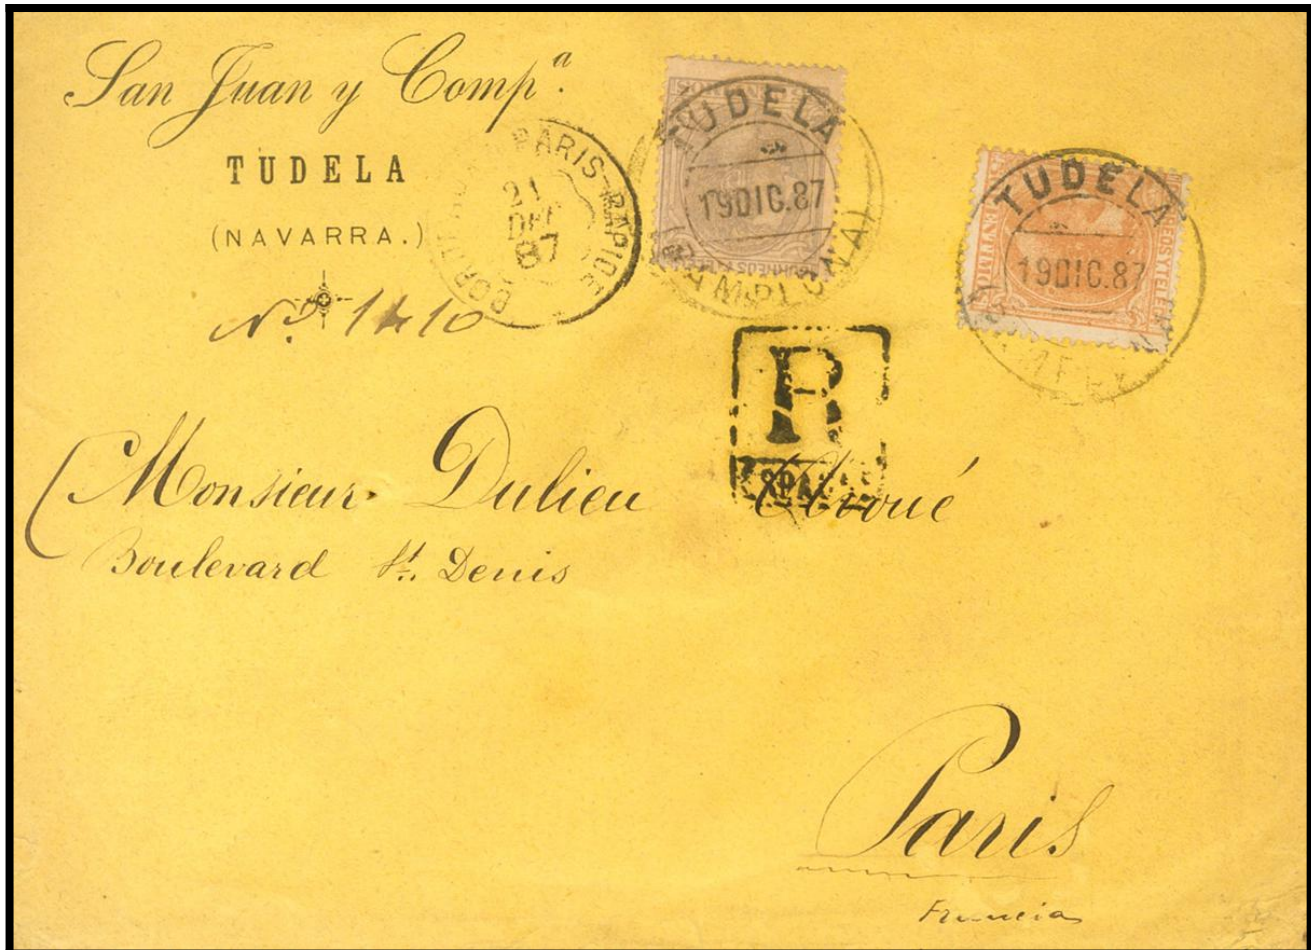 San Juan y Comp.ª
TUDELA
(NAVARRA.)
Nº 1410
PARIS RAPIDE
21
DEC
87
TUDELA
19DIC.87
(PAMPLONA)
TUDELA
19DIC.87
R
Monsieur Dulieu
Boulevard St. Denis
Paris
Francia